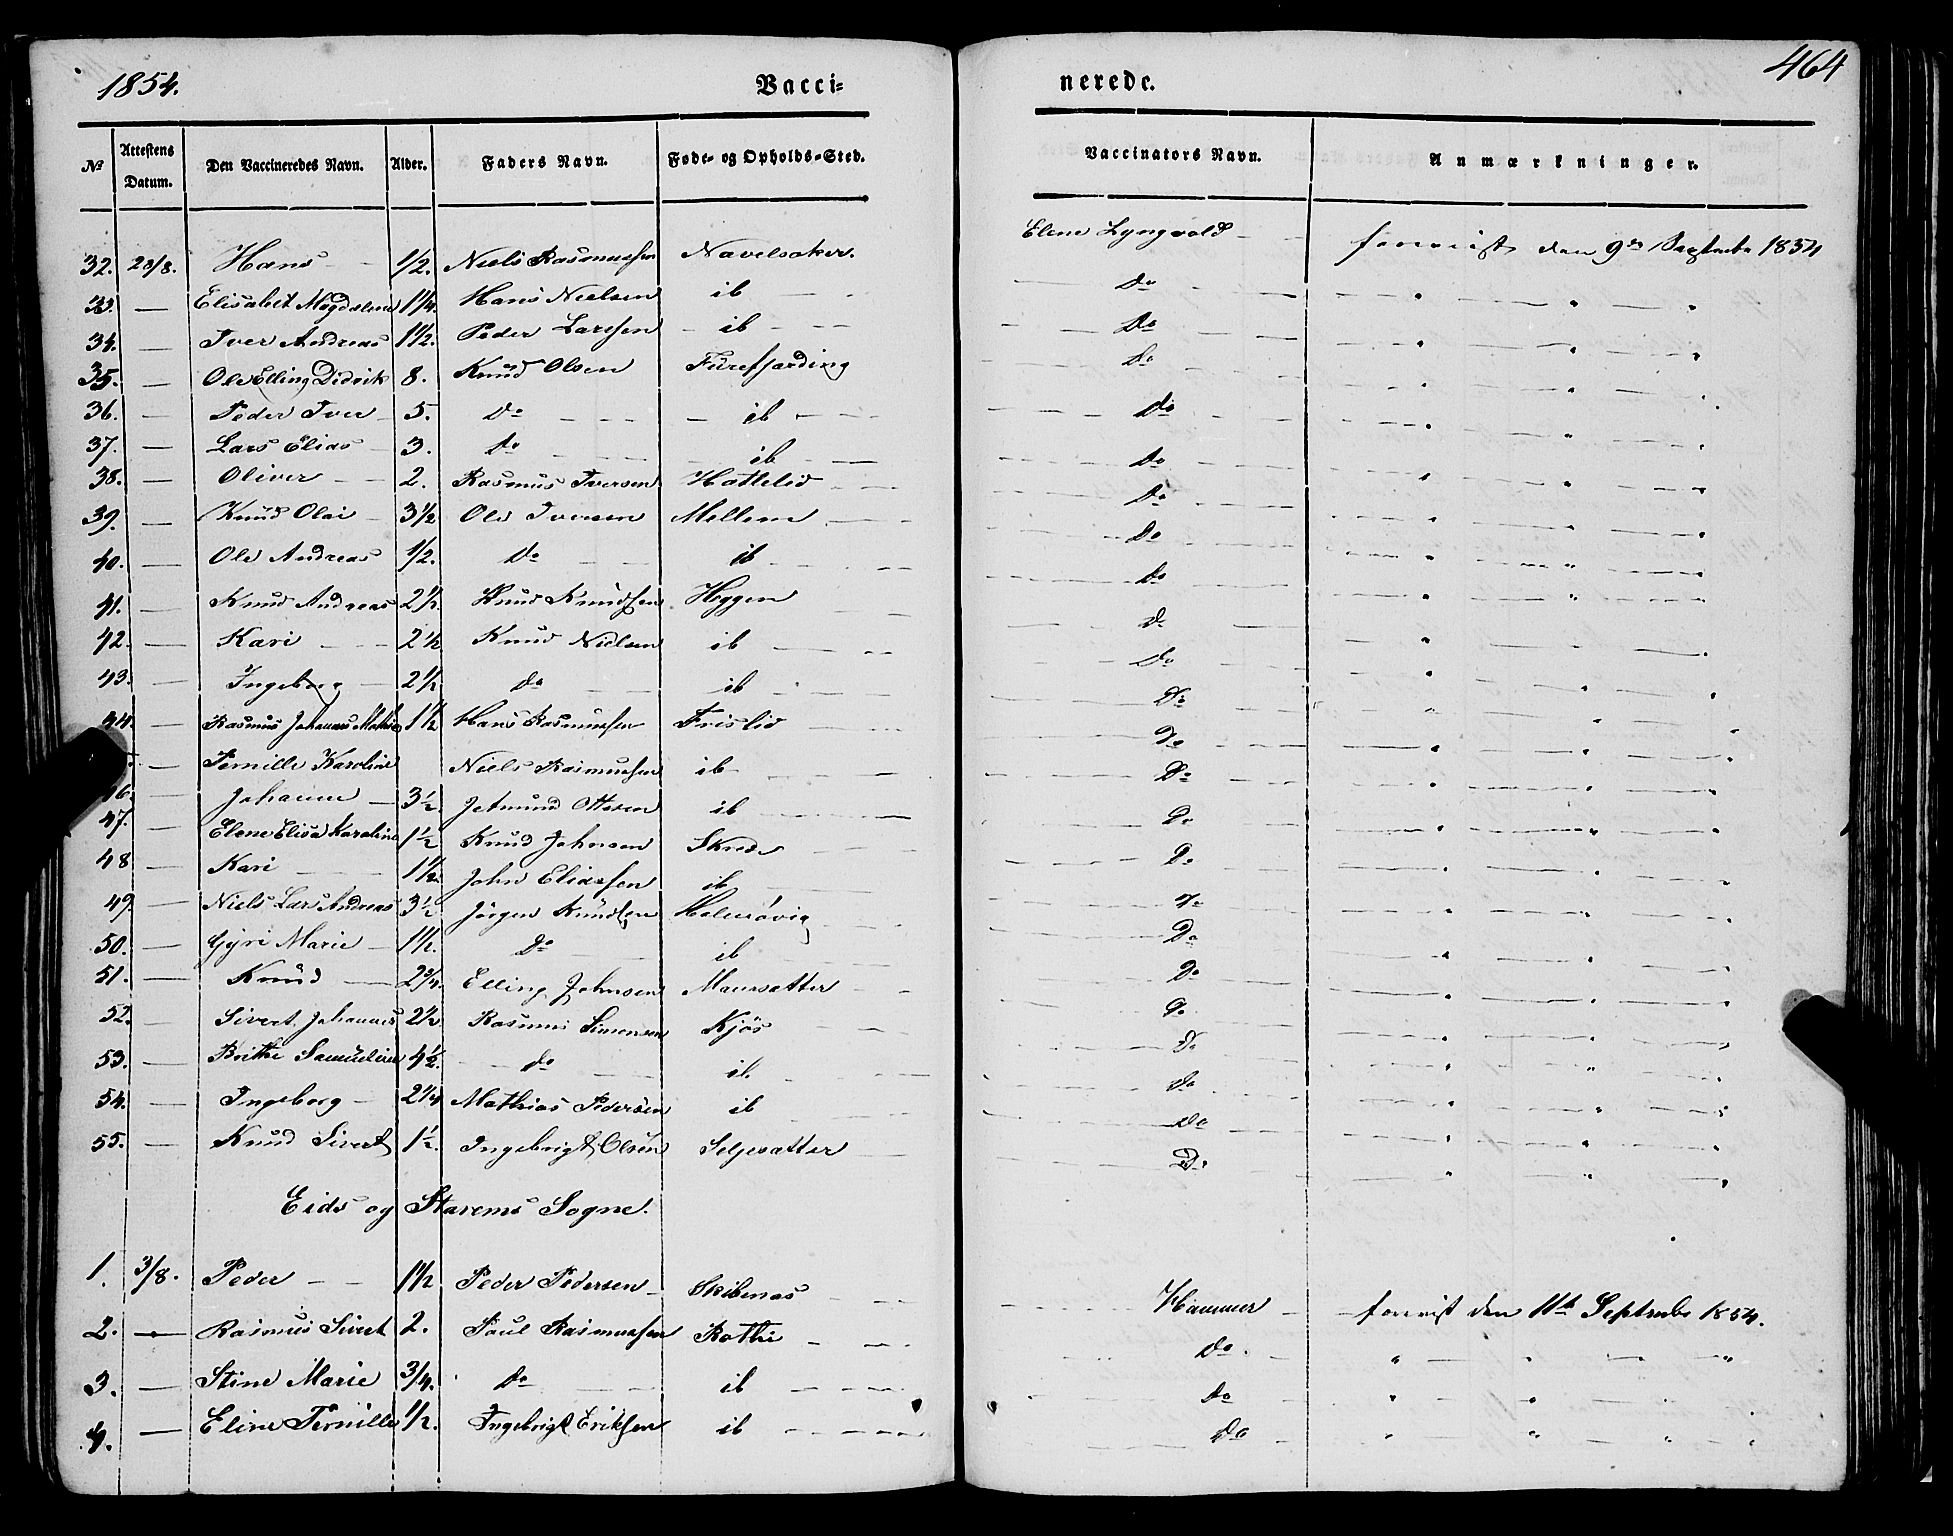 1854.
Vacci-
nerede.
464
No | Attestens Datum. | Den Vaccineredes Navn. | Alder. | Faders Navn. | Føde- og Opholds-Sted. | Vaccinators Navn. | Anmærkninger.
32. 23/8. Hans 1/2. Niels Rasmussen Navelsaker. Elene Lyngvold foreviist den 9de Septembr 1854
33. — Elisabet Magdalene 1 1/4. Hans Nielsen ib Do " " "
34. — Iver Andreas 1 1/2. Peder Larssen ib Do " " "
35. — Ole Elling Didrik 8. Knud Olsen Furefjærding Do " " "
36. — Peder Iver 5. Do ib do " " "
37. — Lars Elias 3. do ib Do " " "
38. — Oliver 2. Rasmus Iversen Hattelid Do " " "
39. — Knud Olai 3 1/2 Ole Iversen Mellem Do " " "
40. — Ole Andreas 1/2. Do ib do " " "
41. — Knud Andreas 2 1/2. Knud Knudsen Heggen Do " " "
42. — Kari 2 1/2 Knud Nielsen ib Do " " "
43. — Ingeborg 2 1/2 do ib Do " " "
44. — Rasmus Johannes Mathias 1 1/2 Hans Rasmussen Frislid Do " " "
— Pernille Karoline Niels Rasmussen ib Do " " "
46. — Johanne 3 1/2 Jetmund Ottesen ib Do " " "
47. — Elene Elisa Karoline 1 1/2 Knud Johnsen Skrede Do " " "
48 — Kari 1 1/2. John Eliassen ib Do " " "
49. — Niels Lars Andreas 3 1/2 Jörgen Knudsen Holmövig Do " " "
50. — Gyri Marie 1 1/2. Do ib Do " " "
51. — Knud 2 3/4. Elling Johnsen Maursætter Do " " "
52. — Sivert Johannes 2 1/2 Rasmus Simonsen Kjös Do " " "
53. — Brithe Samueline 4 1/2. do ib. do " " "
54. — Ingeborg 2 1/4 Mathias Pedersen ib Do " " "
55. — Knud Sivert 1 1/2. Ingebrigt Olsen Seljesætter Do " " "
Eids og Starems Sogne.
1. 3/8. Peder 1 1/2 Peder Pedersen Skibenæs Hammer foreviist den 11te Septembr 1854.
2. — Rasmus Sivert 2. Paul Rasmussen Rothe do " " "
3. — Stine Marie 3/4. do ib do " " "
4. — Eline Pernille 1/2. Ingebrigt Eriksen ib do " " "